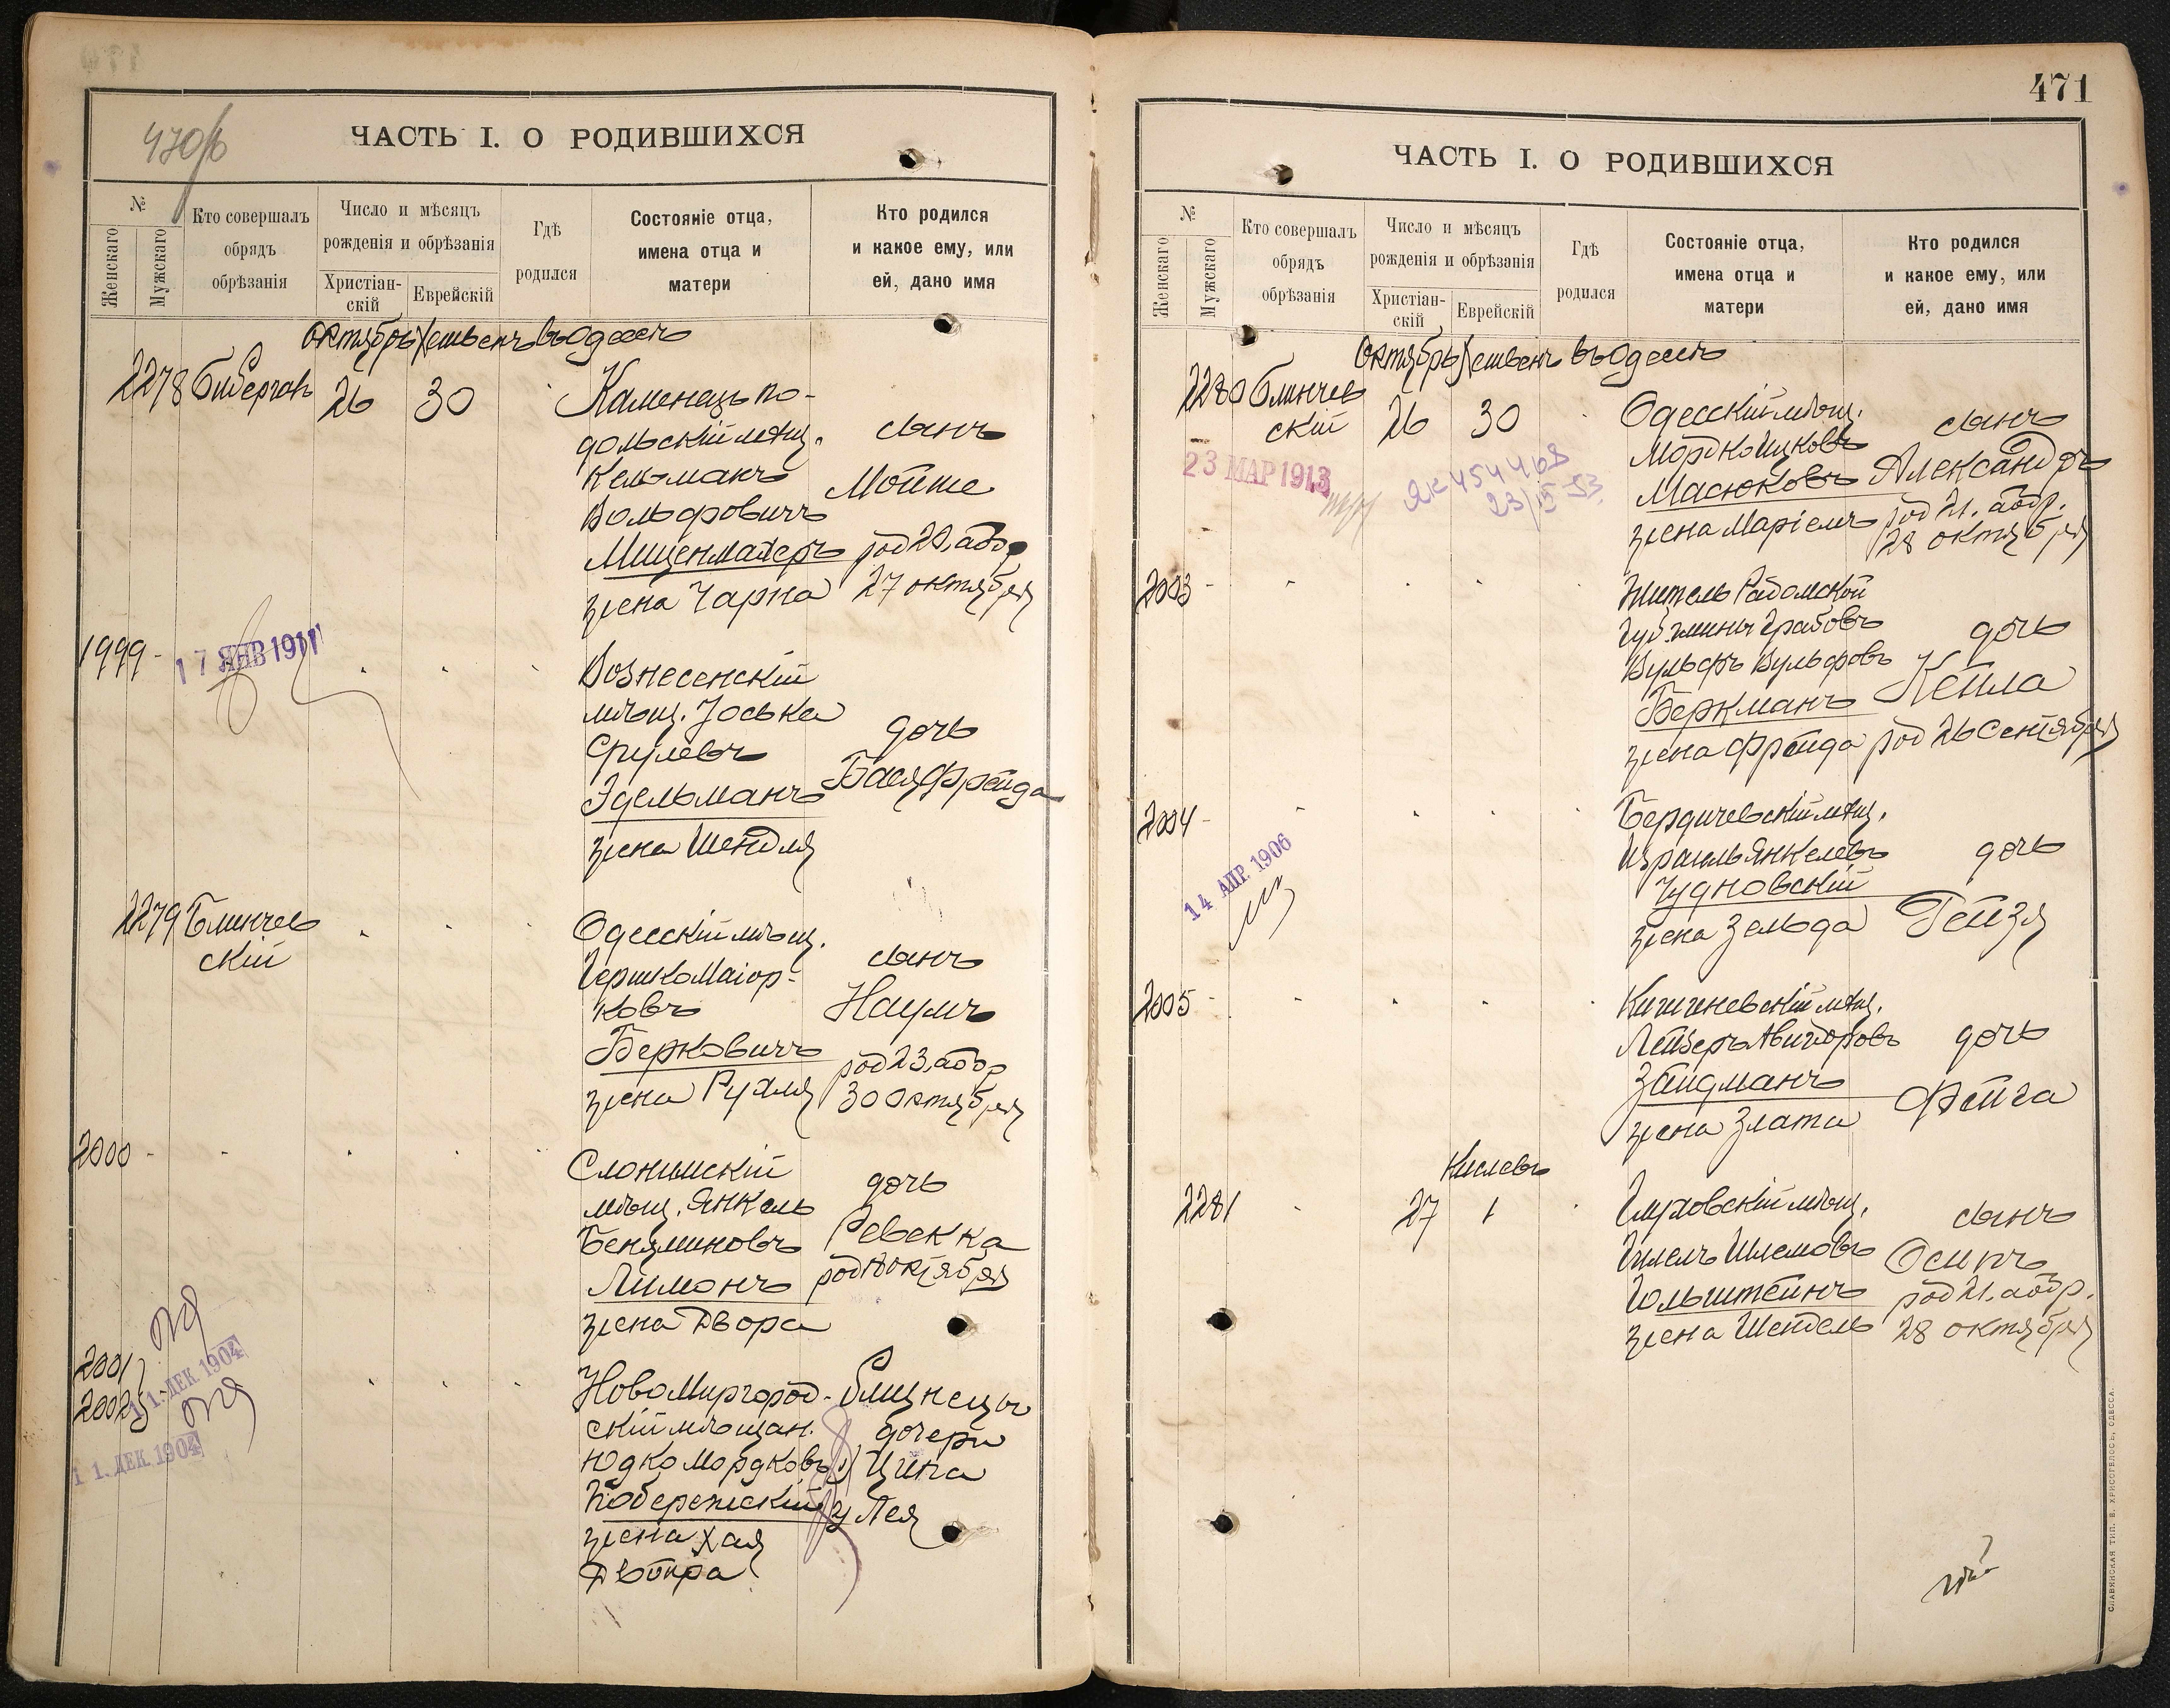 470об
ЧАСТЬ I. О РОДИВШИХСЯ
№
Женскаго
Мужскаго
Кто совершалъ
обрядъ
обрѣзанія
Число и мѣсяцъ
рожденія и обрѣзанія
Христіан-
скій
Еврейскій
Гдѣ
родился
Состояніе отца,
имена отца и
матери
Кто родился
и какое ему, или
ей, дано имя
Октябрь Хешвенъ въ Одессѣ
2278 26 30
Каменецъ по-
дольскій мѣщ.
Кельманъ
Вольфовичъ
жена Чарна
сынъ
Мойше
род 20, абр
27 октября
1999
17 ЯНВ 1911
Вознесенскій
мѣщ. Іоська
Срулевъ
Эдельманъ
жена Шейдля
дочь
Бася Фрейда
2279 Блинчев
скій
Одесскій мѣщ.
Гершко Маіор-
ковъ
Берковичъ
жена Рухля
сынъ
Наумъ
род 23, абр
30 октября
2000
Слонимскій
мѣщ. Янкель
Беняминовъ
Лимонъ
жена Двора
дочь
Ревекка
2001
2002
11. ДЕК 1904
11. ДЕК 1904
Ново Миргород-
скій мѣщан.
Юдко Мордковъ
Побережскій
жена Хая
Двойра
близнецы
дочери
1) Ципа
2) Лея
471
ЧАСТЬ I. О РОДИВШИХСЯ
№
Женскаго
Мужскаго
Кто совершалъ
обрядъ
обрѣзанія
Число и мѣсяцъ
рожденія и обрѣзанія
Христіан-
скій
Еврейскій
Гдѣ
родился
Состояніе отца,
имена отца и
матери
Кто родился
и какое ему, или
ей, дано имя
Октябрь Хешвенъ въ Одессѣ
2280 Блинчев
скій
26 30
23 МАР 1913
ЯК 454468
Одесскій мѣщ.
Мордко Ицковъ
Масюковъ
жена Маріемъ
сынъ
Александръ
род 21. абр.
28 октября
2003
Житель Радомской
губ. гмины Грабовъ
Вульфъ Вульфовъ
Беркманъ
жена Фрейда
дочь
Кейла
род 26 Сентября
2004
14 АПР. 1906
Бердичевскій мѣщ.
Израиль Янкелевъ
Чудновскій
жена Зельда
дочь
Рейзя
2005
Кишиневскій мѣщ.
Лейзеръ Авигдоровъ
Зайдманъ
жена Злата
дочь
Фейга
Кислевъ
2281 27 1
Глуховскій мѣщ.
Гольштейнъ
жена Шейдель
сынъ
Осипъ
род 21. абр.
28 октября
СЛАВЯНСКАЯ ТИП. В. ХРИСОГЕЛОСЪ, ОДЕССА.